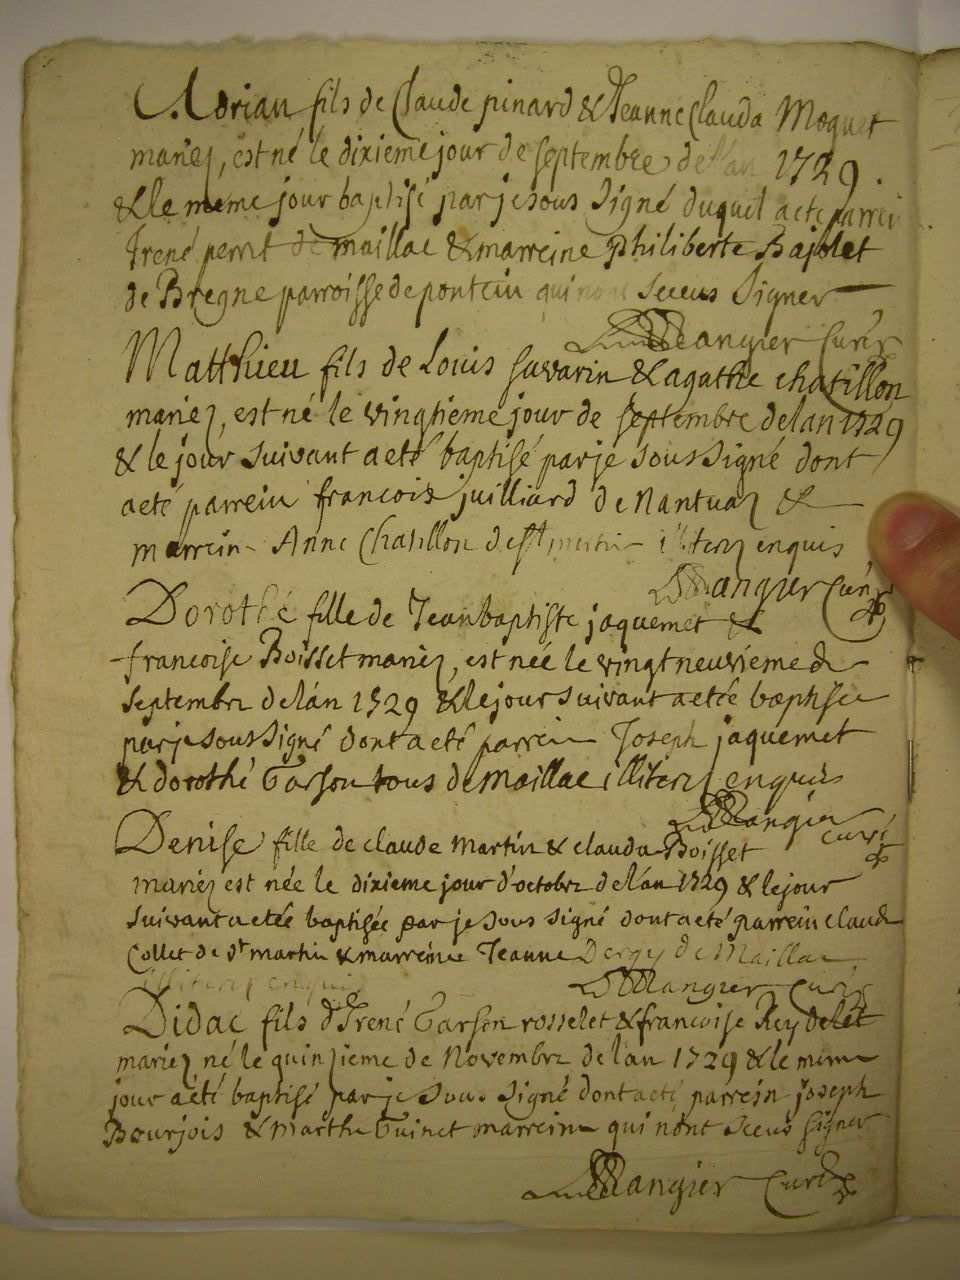 Adrian fils de Claude pinard & Jeanne Clauda Moquet
mariez, est né le dixieme jour de septembre de l'an 1729.
& le meme jour baptisé par je sous signé duquel a eté parrei
Irené perret de maillac & marreine Philiberte Bajolet
de Bregne parroisse de poncin qui nont sceus signer
Mangier Curé
Matthieu fils de Louis savarin & agathe chatillon
mariez, est né le vingtieme jour de septembre de lan 1729
& le jour suivant a eté baptisé par je sous signé dont
a eté parrein francois juilliard de Nantuaz &
marrein Anne Chatillon de st martin illiterez enquis
Mangier Curé
Dorothé fille de Jean baptiste jaquemet &
francoise Boisset mariez, est née le vingt neuvieme de
septembre de lán 1729 & le jour suivant a etée baptisée
par je sous signé dont a eté parrein Joseph jaquemet
& dorothé Carson tous de Maillac illiterez enquis
Mangier curé
Denise fille de claude Martin & clauda Boisset
mariez est née le dixieme jour d'octobre de l'an 1729 & le jour
suivant a etée baptisée par je sous signé dont a eté parrein claude
Collet de st martin & marreine Jeanne Dergy de Maillac
illiterez enquis
Mangier Curé
Didac fils d'Irené Carson rosselet & francoise Rey delet
mariez né le quinzieme de Novembre de lan 1729 & le meme
jour a été baptisé par je sous signé dont a eté parrein joseph
Bourjois & Marthe Guinet marreine qui nont sceus signer
Mangier Curé